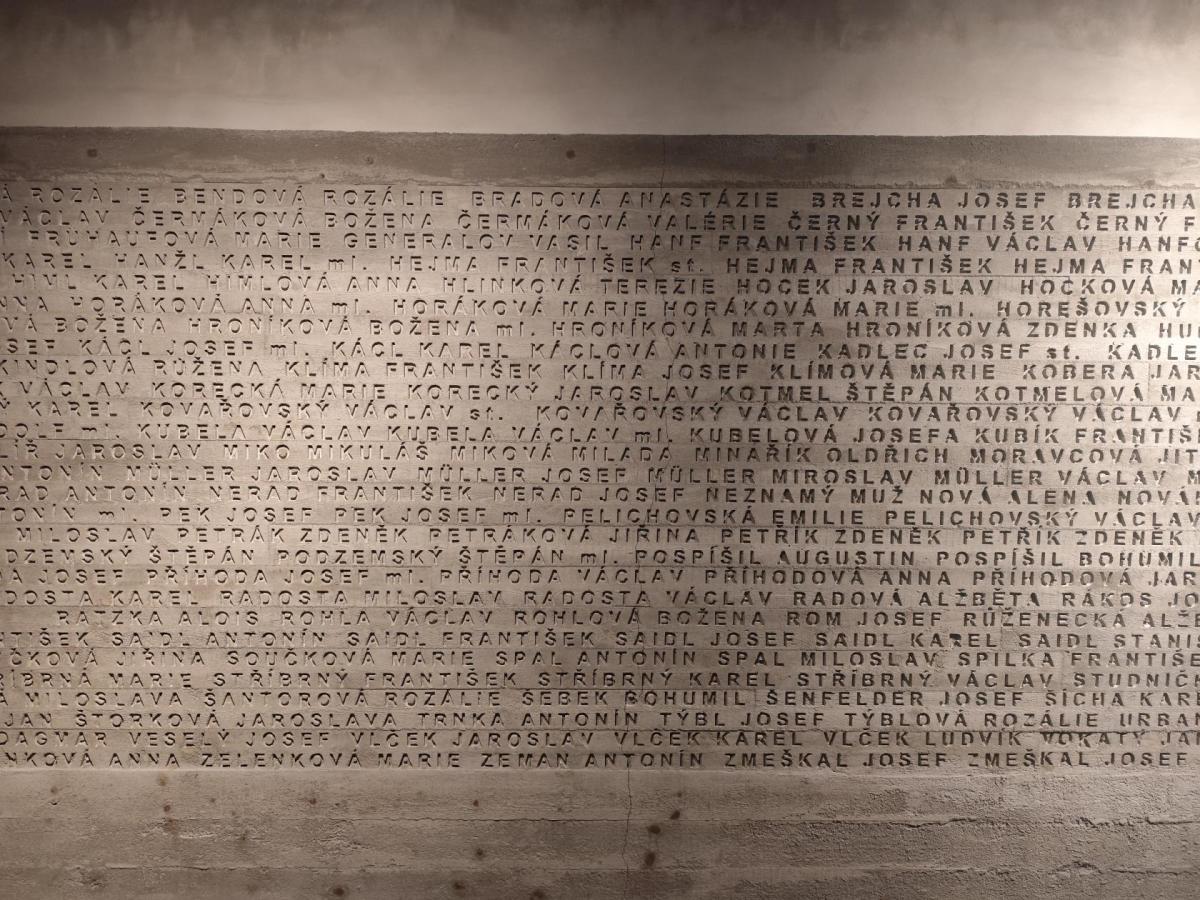 Á ROZÁLIE BENDOVÁ ROZÁLIE BRADOVÁ ANASTÁZIE BREJCHA JOSEF BREJCHA
VÁCLAV ČERMÁKOVÁ BOŽENA ČERMÁKOVÁ VALÉRIE ČERNÝ FRANTIŠEK ČERNÝ F
FRÜHAUFOVÁ MARIE GENERALOV VASIL HANF FRANTIŠEK HANF VÁCLAV HANFO
KAREL HANŽL KAREL ml. HEJMA FRANTIŠEK st. HEJMA FRANTIŠEK HEJMA FRANT
HIML KAREL HIMLOVÁ ANNA HLINKOVÁ TEREZIE HOCEK JAROSLAV HOČKOVÁ MA
NNA HORÁKOVÁ ANNA ml. HORÁKOVÁ MARIE HORÁKOVÁ MARIE ml. HOREŠOVSKÝ
VÁ BOŽENA HRONÍKOVÁ BOŽENA ml. HRONÍKOVÁ MARTA HRONÍKOVÁ ZDENKA HU
SEF KÁCL JOSEF ml. KÁCL KAREL KÁCLOVÁ ANTONIE KADLEC JOSEF st. KADLE
KINDLOVÁ RŮŽENA KLÍMA FRANTIŠEK KLÍMA JOSEF KLÍMOVÁ MARIE KOBERA JAR
VÁCLAV KORECKÁ MARIE KORECKÝ JAROSLAV KOTMEL ŠTĚPÁN KOTMELOVÁ MA
Ý KAREL KOVAŘOVSKÝ VÁCLAV st. KOVAŘOVSKÝ VÁCLAV KOVAŘOVSKÝ VÁCLAV
DOLF ml. KUBELA VÁCLAV KUBELA VÁCLAV ml. KUBELOVÁ JOSEFA KUBÍK FRANTIŠ
LÍŘ JAROSLAV MIKO MIKULÁŠ MIKOVÁ MILADA MINAŘÍK OLDŘICH MORAVCOVÁ JIT
ANTONÍN MÜLLER JAROSLAV MÜLLER JOSEF MÜLLER MIROSLAV MÜLLER VÁCLAV M
RAD ANTONÍN NERAD FRANTIŠEK NERAD JOSEF NEZNAMÝ MUŽ NOVÁ ALENA NOVÁK
TONÍN ml. PEK JOSEF PEK JOSEF ml. PELICHOVSKÁ EMILIE PELICHOVSKÝ VÁCLAV
MILOSLAV PETRÁK ZDENĚK PETRÁKOVÁ JIŘINA PETŘÍK ZDENĚK PETŘÍK ZDENĚK
DZEMSKÝ ŠTĚPÁN PODZEMSKÝ ŠTĚPÁN ml. POSPÍŠIL AUGUSTIN POSPÍŠIL BOHUMIL
DA JOSEF PŘÍHODA JOSEF ml. PŘÍHODA VÁCLAV PŘÍHODOVÁ ANNA PŘÍHODOVÁ JAR
DOSTA KAREL RADOSTA MILOSLAV RADOSTA VÁCLAV RADOVÁ ALŽBĚTA RÁKOS JO
RATZKA ALOIS ROHLA VÁCLAV ROHLOVÁ BOŽENA ROM JOSEF RŮŽENECKÁ ALŽB
NTIŠEK SAIDL ANTONÍN SAIDL FRANTIŠEK SAIDL JOSEF SAIDL KAREL SAIDL STANIS
ČKOVÁ JIŘINA SOUČKOVÁ MARIE SPAL ANTONÍN SPAL MILOSLAV SPILKA FRANTIŠE
ŘÍBRNÁ MARIE STŘÍBRNÝ FRANTIŠEK STŘÍBRNÝ KAREL STŘÍBRNÝ VÁCLAV STUDNIČK
Á MILOSLAVA ŠANTOROVÁ ROZÁLIE ŠEBEK BOHUMIL ŠENFELDER JOSEF ŠÍCHA KAR
JAN ŠTORKOVÁ JAROSLAVA TRNKA ANTONÍN TÝBL JOSEF TÝBLOVÁ ROZÁLIE URBAN
DAGMAR VESELÝ JOSEF VLČEK JAROSLAV VLČEK KAREL VLČEK LUDVÍK VOKATÝ JAN
NKOVÁ ANNA ZELENKOVÁ MARIE ZEMAN ANTONÍN ZMEŠKAL JOSEF ZMEŠKAL JOSEF